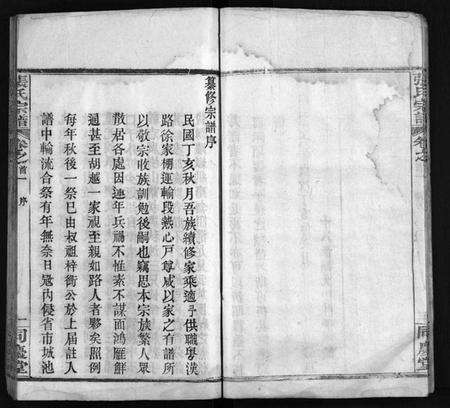 張氏宗譜
卷之
同慶堂
纂修宗譜序
民國丁亥秋月吾族續修家乘適予供職粵漢
路徐家棚運輸段熱心戶尊咸以家之有譜所
以敬宗收族訓勉後嗣也竊思本宗族繁人眾
散居各處因連年兵禍不惟素不謀面鴻雁鮮
通甚至胡越一家視至親如路人者夥矣照例
每年秋後一祭巳由叔祖梓衡公於上屆註入
譜中輪流合祭有年無奈日寇內侵省市城池
張氏宗譜
卷之首
序
一
同慶堂